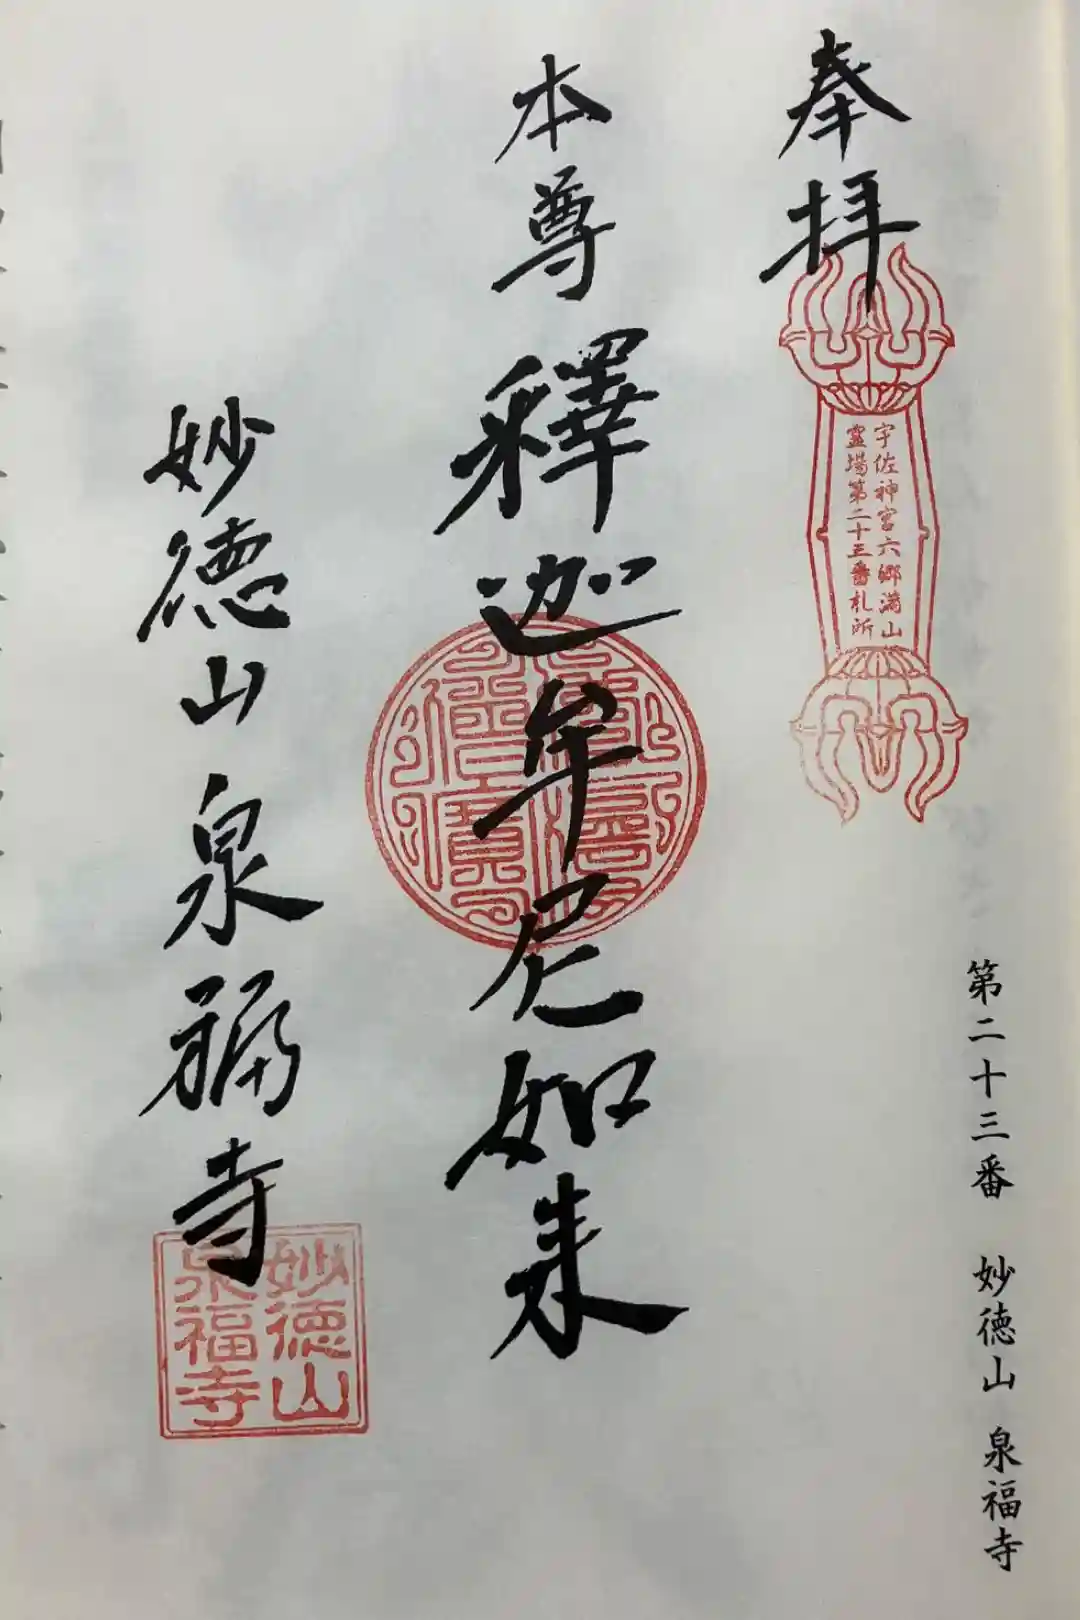 奉拝
宇佐神宮六郷満山
霊場第二十三番札所
本尊 釋迦牟尼如来
妙徳山泉福寺
妙徳山
泉福寺
第二十三番 妙徳山 泉福寺